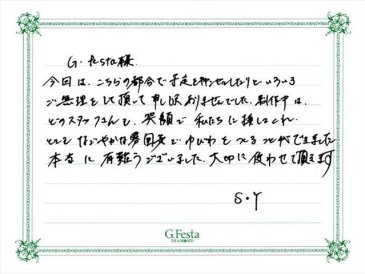 G.festa様
今回は、こちらの都合で予定を押せしたりといろいろ
ご無理をして頂いて申し訳ありませんでした。制作中は、
どのスタッフさんも、笑顔で私たちに接してくれ、
とても なごやかな雰囲気でゆびわをつくる事ができました
本当に有難うございました。大切に使わせて頂きます
S・Y
G.Festa
DIAMOND